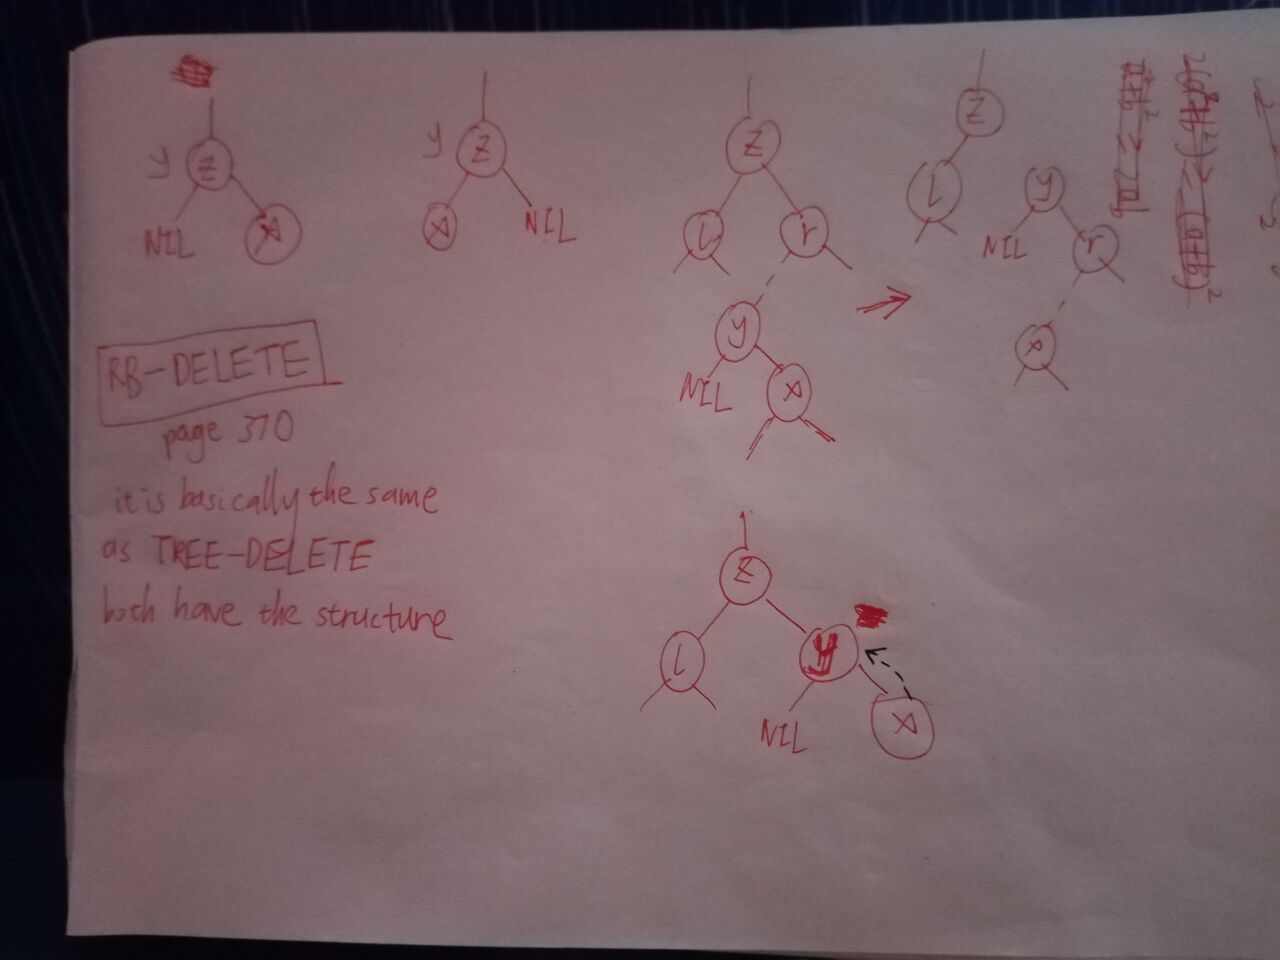 y
z
NIL
x
y
z
x
NIL
z
l
r
y
NIL
x
z
l
y
NIL
r
x
RB-DELETE
page 370
it is basically the same
as TREE-DELETE
both have the structure
z
l
y
NIL
x